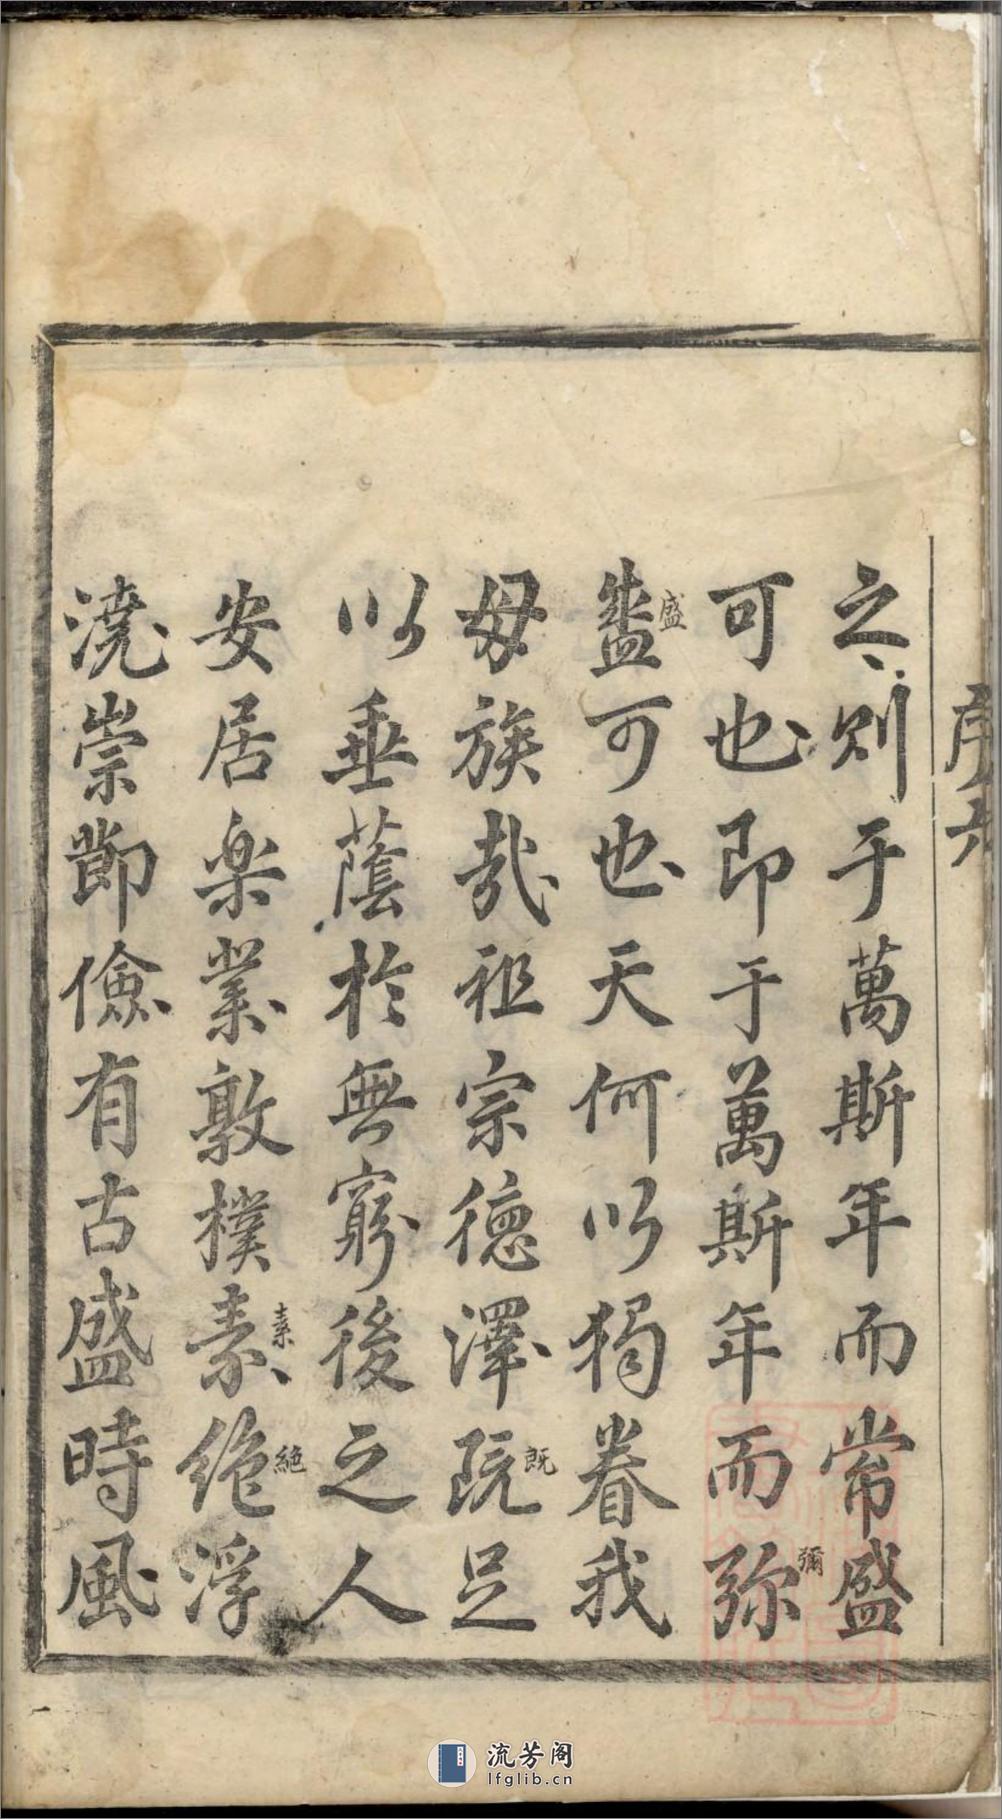 之則于萬斯年而常盛
可也即于萬斯年而弥
彌
盛可也天何以獨眷我
盛
母族哉祖宗德澤既足
既
以垂蔭於無窮後之人
安居楽業敦樸素絶浮
素
絕
澆崇節儉有古盛時風
流芳阁
lfglib.cn